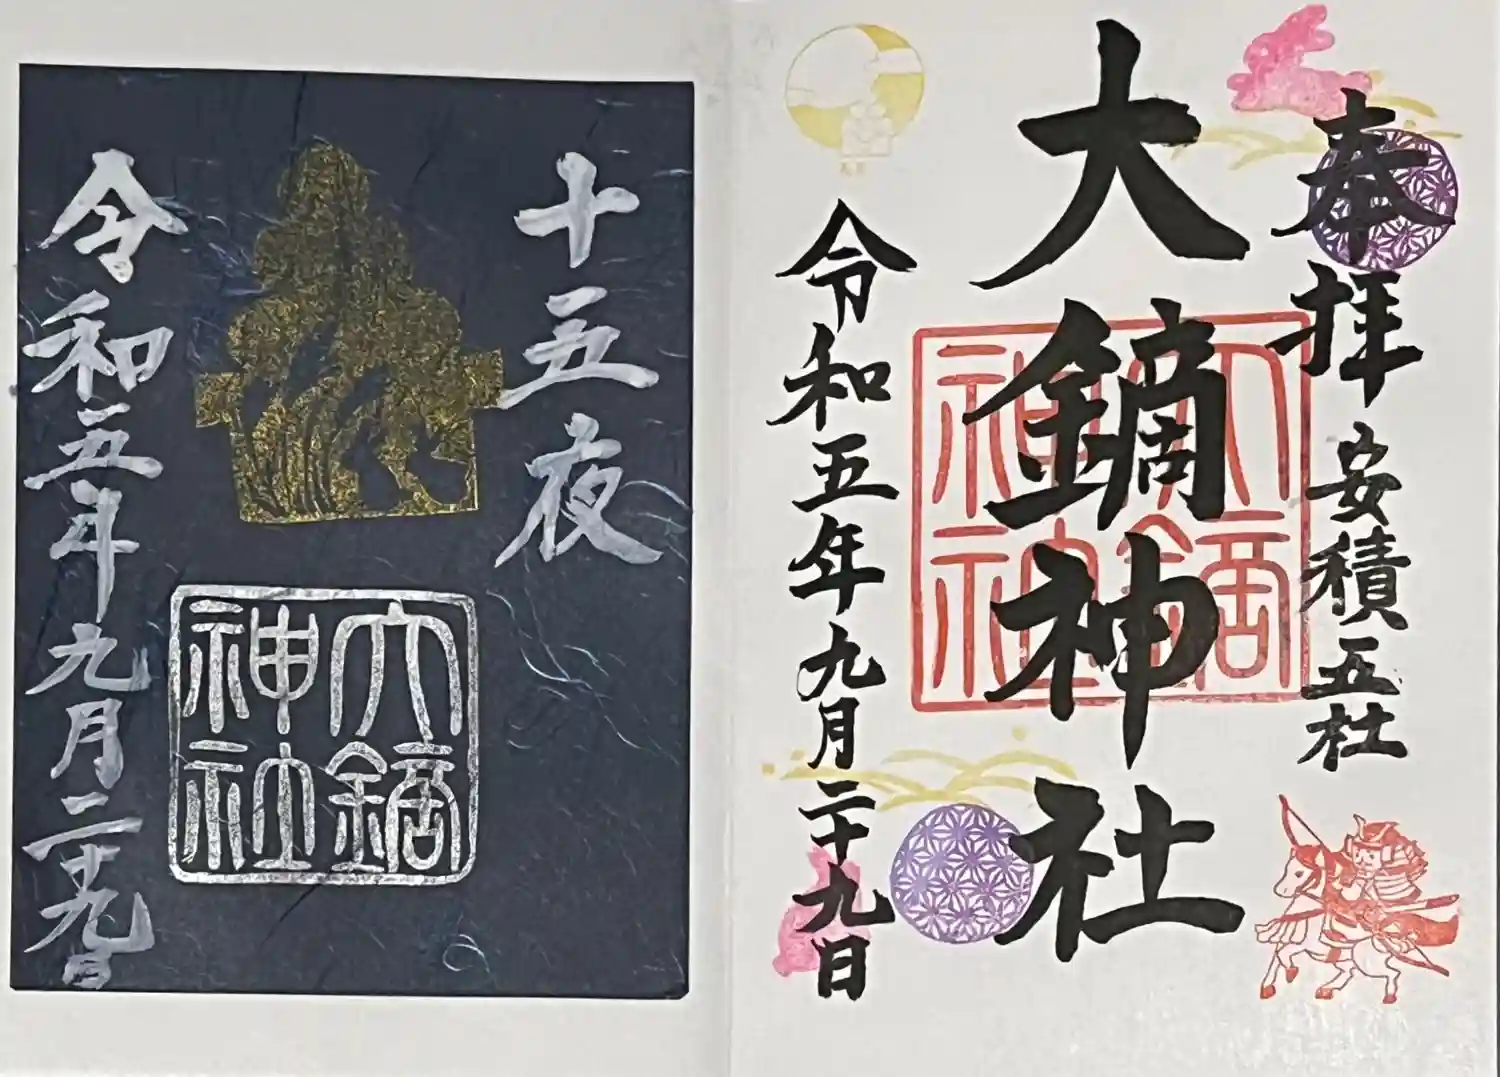 奉拝 安積五社
大鏑神社
大鏑神社
令和五年九月二十九日
十五夜
大鏑神社
令和五年九月二十九日